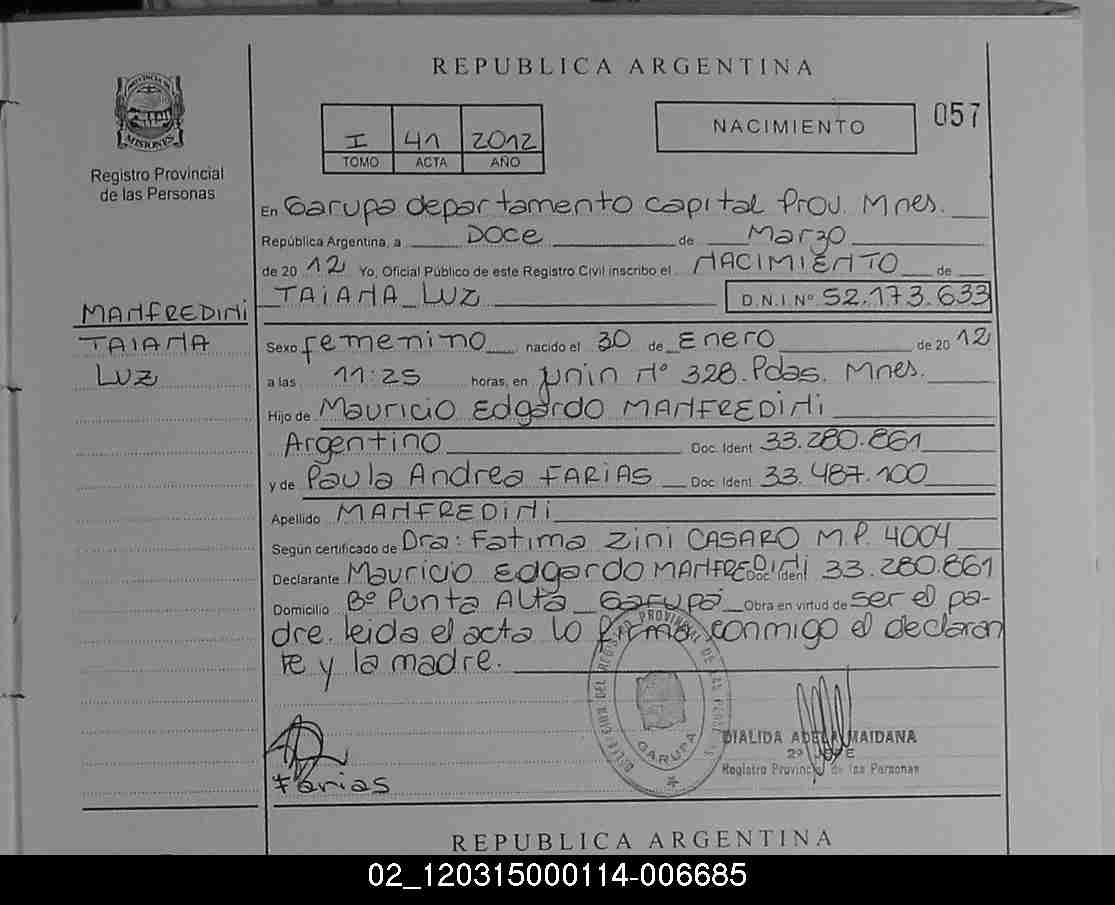 REPUBLICA ARGENTINA
PROVINCIA DE MISIONES
Registro Provincial
de las Personas
I 41 2012
TOMO ACTA AÑO
NACIMIENTO
057
En Garupa departamento capital Prov. Mnes.
República Argentina, a DOCE de Marzo
de 2012 Yo, Oficial Público de este Registro Civil inscribo el NACIMIENTO de
TAIANA LUZ D.N.I. Nº 52.173.633
MANFREDINI
TAIANA
LUZ
Sexo femenino nacido el 30 de Enero de 2012
a las 11:25 horas, en Junin Nº 328. Pdas. Mnes.
Hijo de Mauricio Edgardo MANFREDINI
Argentino Doc. Ident 33.280.861
y de Paula Andrea FARIAS Doc. Ident 33.487.100
Apellido MANFREDINI
Según certificado de Dra: Fatima Zini CASARO M.P. 4004
Declarante Mauricio Edgardo MANFREDINI Doc. Ident 33.280.861
Domicilio Bº Punta Alta Garupá Obra en virtud de ser el pa-
dre. leida el acta lo firma conmigo el declaran
te y la madre.
DELEGACION DEL REGISTRO PROVINCIAL DE LAS PERSONAS
GARUPA
DIALIDA ADELA MAIDANA
2º JEFE
Registro Provincial de las Personas
Farias
REPUBLICA ARGENTINA
02_120315000114-006685